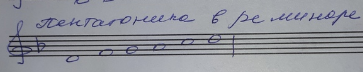 пентатоника в ре миноре